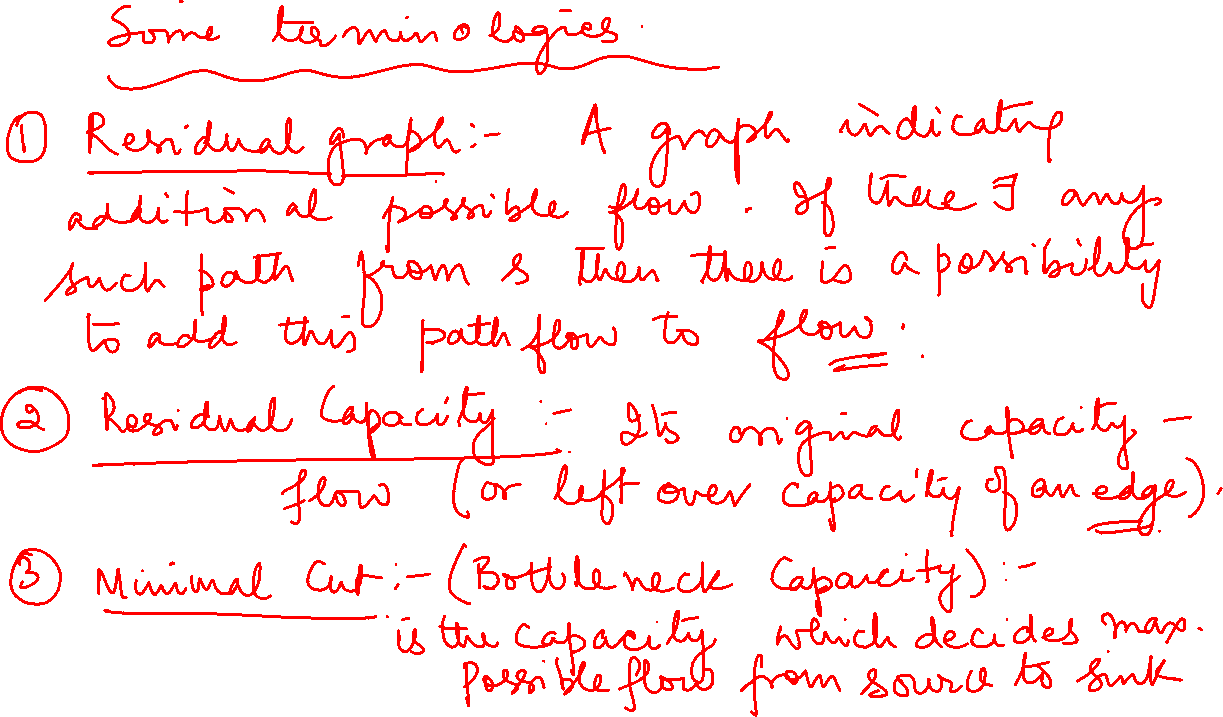 Some terminologies.
① Residual graph :- A graph indicating
additional possible flow. If there ∃ any
such path from s then there is a possibility
to add this path flow to flow.
② Residual Capacity :- Its original capacity -
flow (or left over capacity of an edge).
③ Minimal Cut :- (Bottleneck Capacity) :-
is the capacity which decides max.
Possible flow from source to sink